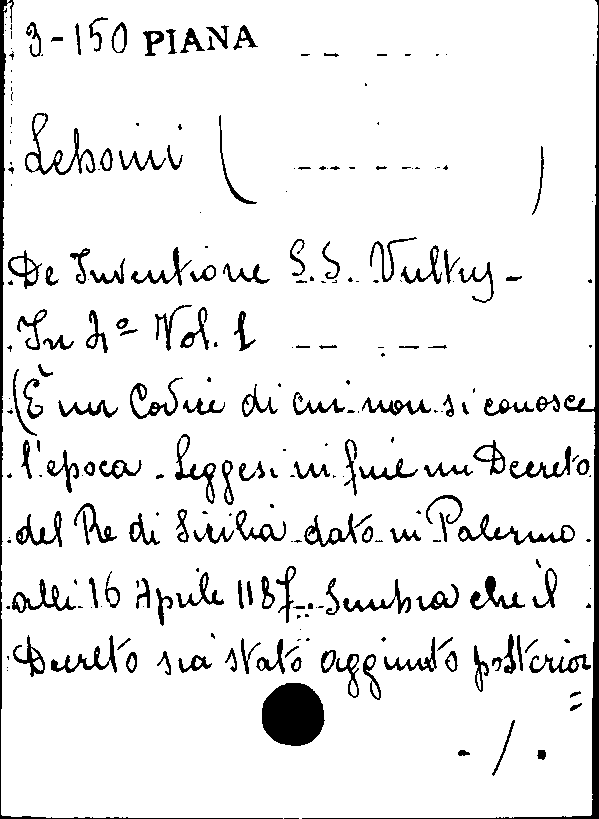 3-150 PIANA
Leboini ( )
De Inventione S.S. Vultus -
In 4º Vol. 1
(È un Codice di cui non si conosce
l'epoca. Leggesi in fine un Decreto
del Re di Sicilia dato in Palermo
alli 16 Aprile 1187. Sembra che il
Decreto sia stato aggiunto posterior
=
- / .